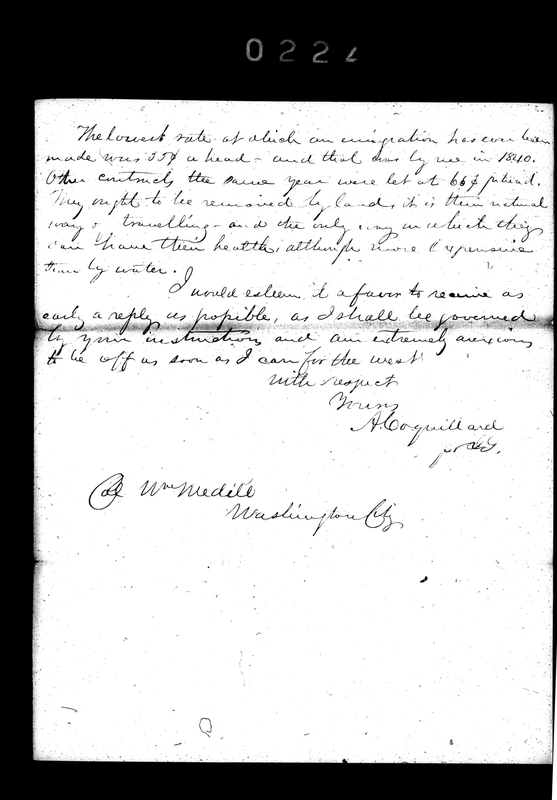 022
The lowest rate at which an emigration has ever been
made was 55¢ a head - and that was by me in 1840.
Other contracts the same year were let at 66¢ pr head.
They ought to be removed by land, it is their natural
way of travelling - and the only way in which they
can have their health, although more expensive
than by water.
I would esteem it a favor to receive as
early a reply as possible, as I shall be governed
by your instructions and am extremely anxious
to be off as soon as I can for the west
With respect
Yours
A. Coquillard
Col Wm Medill
Washington City